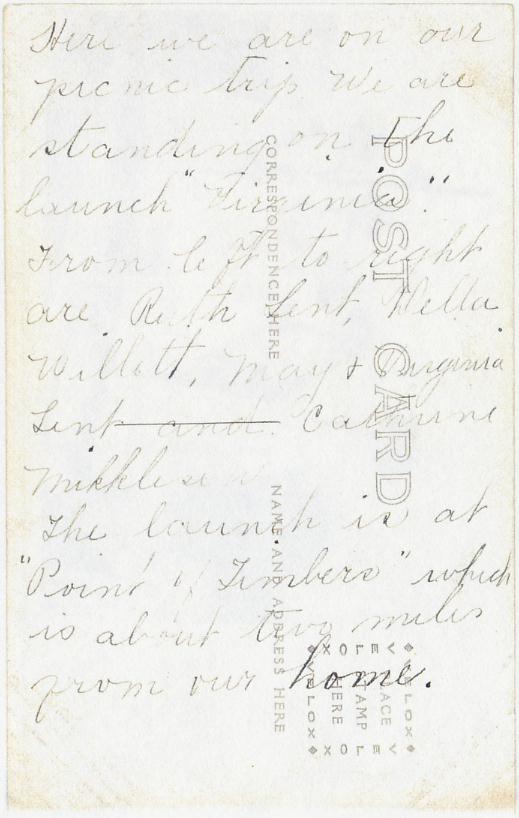 Here we are on our
picnic trip We are
standing on the
launch "Virginia".
From left to right
are Ruth Lent, Della
Willett, May & Virginia
Lent and Cathrine
Mikklesen
The launch is at
"Point of Timbers" which
is about two miles
from our home.
POST CARD
CORRESPONDENCE HERE
NAME AND ADDRESS HERE
VELOX
PLACE
STAMP
HERE
VELOX